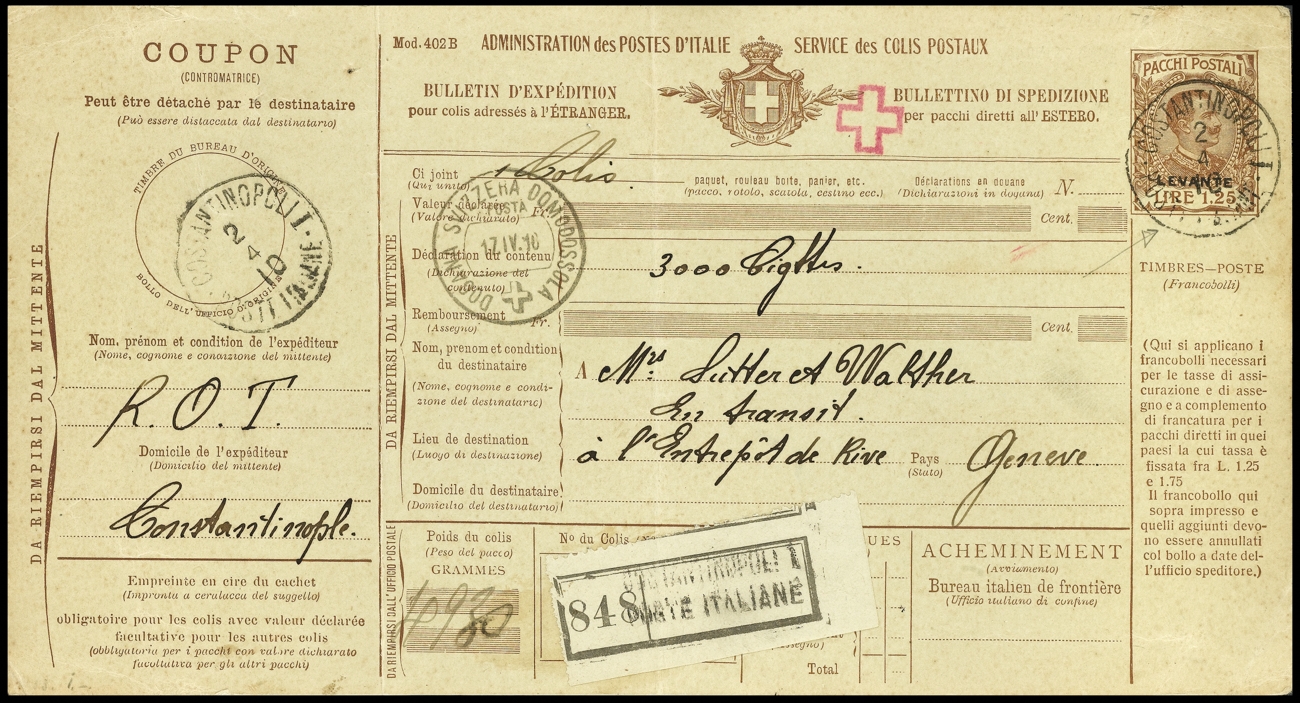 COUPON
(CONTROMATRICE)
Peut être détaché par le destinataire
(Può essere distaccata dal destinatario)
TIMBRE DU BUREAU D'ORIGINE
COSTANTINOPOLI I
2
4
10
POSTE ITALIANE
BOLLO DELL'UFFICIO D'ORIGINE
DA RIEMPIRSI DAL MITTENTE
Nom, prénom et condition de l'expéditeur
(Nome, cognome e condizione del mittente)
R. O. T.
Domicile de l'expéditeur
(Domicilio del mittente)
Constantinople.
Empreinte en cire du cachet
(Impronta a ceralacca del suggello)
obligatoire pour les colis avec valeur déclarée
facultative pour les autres colis
(obbligatoria per i pacchi con valore dichiarato
facoltativa per gli altri pacchi)
Mod. 402 B ADMINISTRATION des POSTES D'ITALIE SERVICE des COLIS POSTAUX
BULLETIN D'EXPÉDITION
pour colis adressés à l'ÉTRANGER.
BULLETTINO DI SPEDIZIONE
per pacchi diretti all'ESTERO.
Ci joint 1 Colis
(Qui unito)
paquet, rouleau boite, panier, etc.
(pacco, rotolo, scatola, cestino ecc.)
Déclarations en douane
(Dichiarazioni in dogana) N.
Valeur déclarée Fr. Cent.
(Valore dichiarato)
DOGANA SVIZZERA DOMODOSSOLA
POSTA
17.IV.10
Déclaration du contenu
(Dichiarazione del
contenuto)
3000 Cigttes.
Remboursement Fr. Cent.
(Assegno)
DA RIEMPIRSI DAL MITTENTE
Nom, prenom et condition
du destinataire
(Nome, cognome e condi-
zione del destinatario)
A Mrs. Sutter et Walther
En transit.
Lieu de destination
(Luogo di destinazione)
à l'Entrepôt de Rive Pays Geneve.
(Stato)
Domicile du destinataire
(Domicilio del destinatario)
DA RIEMPIRSI DALL'UFFICIO POSTALE
Poids du colis
(Peso del pacco)
GRAMMES
No du Colis
848
COSTANTINOPOLI I
POSTE ITALIANE
UES
Total
ACHEMINEMENT
(Avviamento)
Bureau italien de frontière
(Ufficio italiano di confine)
PACCHI POSTALI
COSTANTINOPOLI I
2
4
10
LEVANTE
LIRE 1.25
TIMBRES—POSTE
(Francobolli)
(Qui si applicano i
francobolli necessari
per le tasse di assi-
curazione e di asse-
gno e a complemento
di francatura per i
pacchi diretti in quei
paesi la cui tassa è
fissata fra L. 1.25
e 1.75
Il francobollo qui
sopra impresso e
quelli aggiunti devo-
no essere annullati
col bollo a date del-
l'ufficio speditore.)